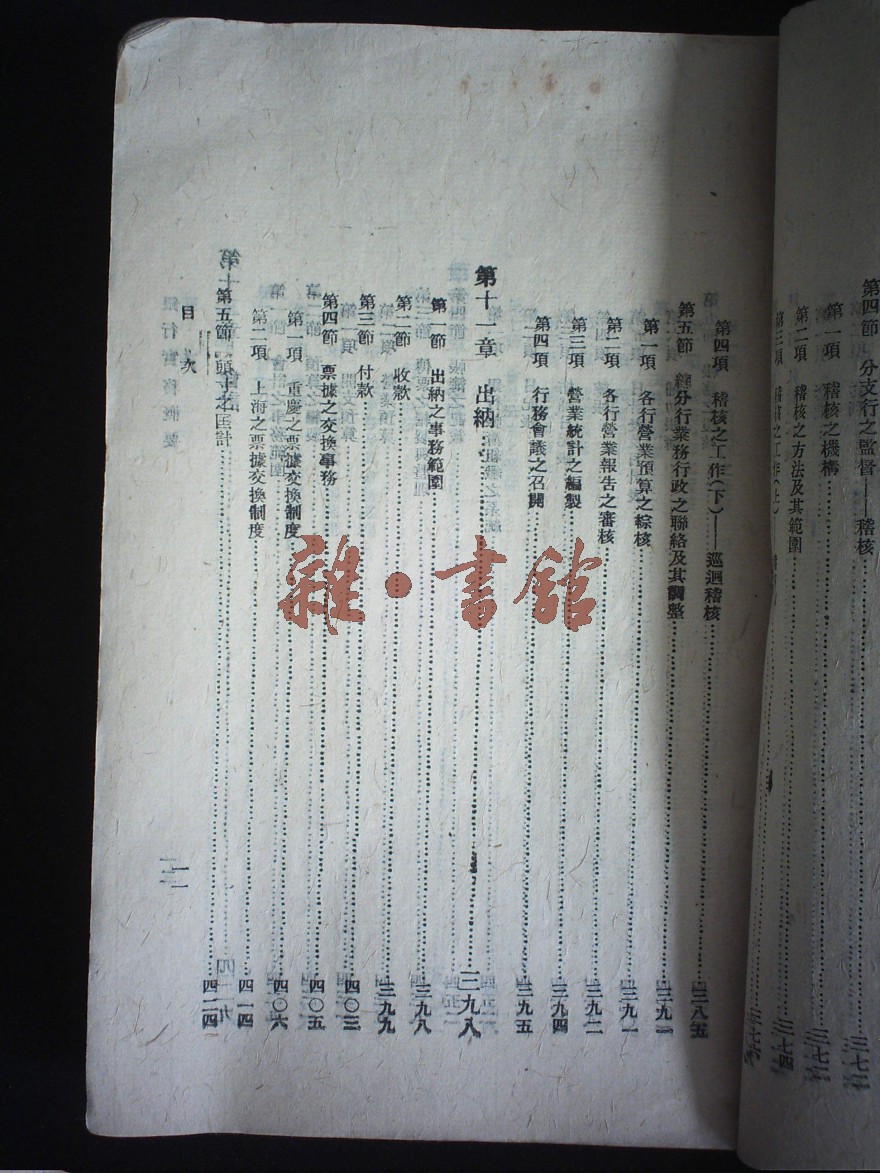 第四節 分支行之監督——稽核……三七二
第一項 稽核之機構……三七二
第二項 稽核之方法及其範圍……三七四
第三項 稽核之工作(上)
第四項 稽核之工作(下)——巡迴稽核……三八五
第五節 分行業務行政之聯絡及其調整……三九一
第一項 各行營業預算之綜核……三九一
第二項 各行營業報告之審核……三九二
第三項 營業統計之編製……三九四
第四項 行務會議之召開……三九五
第十一章 出納……三九八
第一節 出納之事務範圍……三九八
第二節 收款……三九九
第三節 付款……四〇三
第四節 票據之交換事務……四〇五
第一項 重慶之票據交換制度……四〇六
第二項 上海之票據交換制度……四一四
第五節 頭寸之匡計……四二四
目次
一一
雜·書館